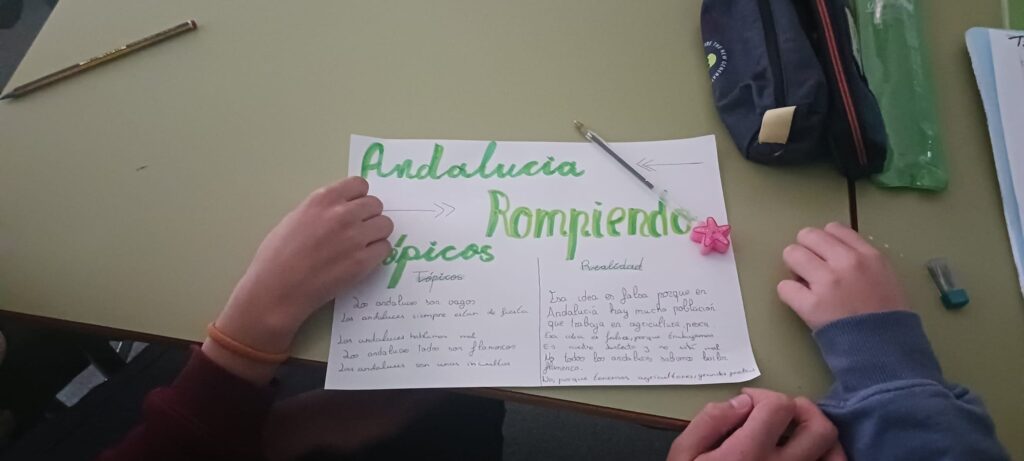 Andalucia
Rompiendo
Tópicos
Tópicos
Realidad
Los andaluces son vagos
Los andaluces siempre estan de fiesta
Los andaluces hablamos mal
Los andaluces todos son flamencos
Los andaluces son unos incultos
Esa idea es falsa porque en
Andalucia hay mucha población
que trabaja en agricultura, pesca
Esa idea es falsa, porque trabajamos
Es nuestro dialecto y no está mal
No todos los andaluces sabemos bailar
flamenco.
No, porque tenemos agricultores, grandes